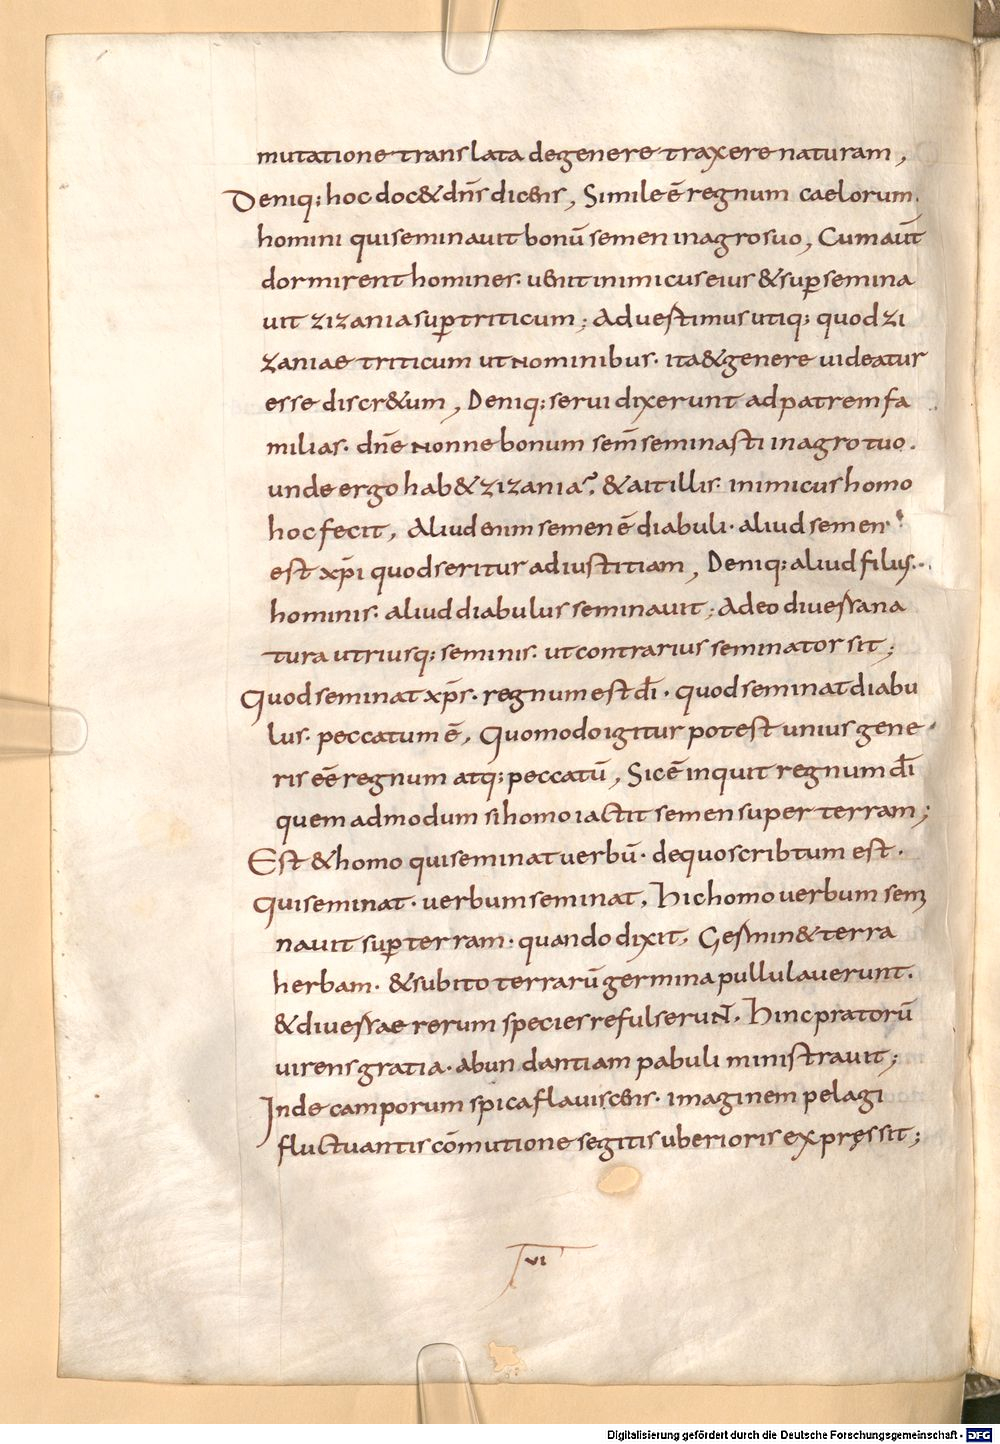 mutatione translata degenere traxere naturam,
Deniq; hoc doc&dn̄s dicens, Simile ē regnum caelorum.
homini qui seminauit bonū semen inagrosuo, Cum aūt
dormirent homines. uenit inimicus eius &sup̄semina
uit zizania sup̄triticum; Aduertimus utiq; quod zi
zaniae triticum ut nominibus. ita&genere uideatur
esse discr&um, Deniq; serui dixerunt adpatremfa
milias. dn̄e nonne bonum sem̄ seminasti inagro tuo.
unde ergo hab& zizania? &ait illis. inimicus homo
hoc fecit, Aliud enim semen ē diabuli. aliud semen
est xp̄i quod seritur adiustitiam, Deniq; aliud filius.
hominis. aliud diabulus seminauit; Adeo diuersa na
tura utriusq; seminis. ut contrarius seminator sit;
Quod seminat xp̄s. regnum est dī. quod seminat diabu
lus. peccatum ē, Quomodo igitur potest unius gene
ris eē regnum atq; peccatū, Sic ē inquit regnum dī
quem admodum si homo iactit semen super terram;
Est &homo qui seminat uerbū. dequo scribtum est.
qui seminat. uerbum seminat, hic homo uerbum semi
nauit sup̄ terram. quando dixit. Germin& terra
herbam. &subito terrarū germina pullulauerunt.
&diuersae rerum species refulserunt. hinc pratorū
uirens gratia. abundantiam pabuli ministrauit;
Inde camporum spica flauiscens. imaginem pelagi
fluctuantis cōmutione segitis uberioris expręssit;
VI
Digitalisierung gefördert durch die Deutsche Forschungsgemeinschaft - DFG